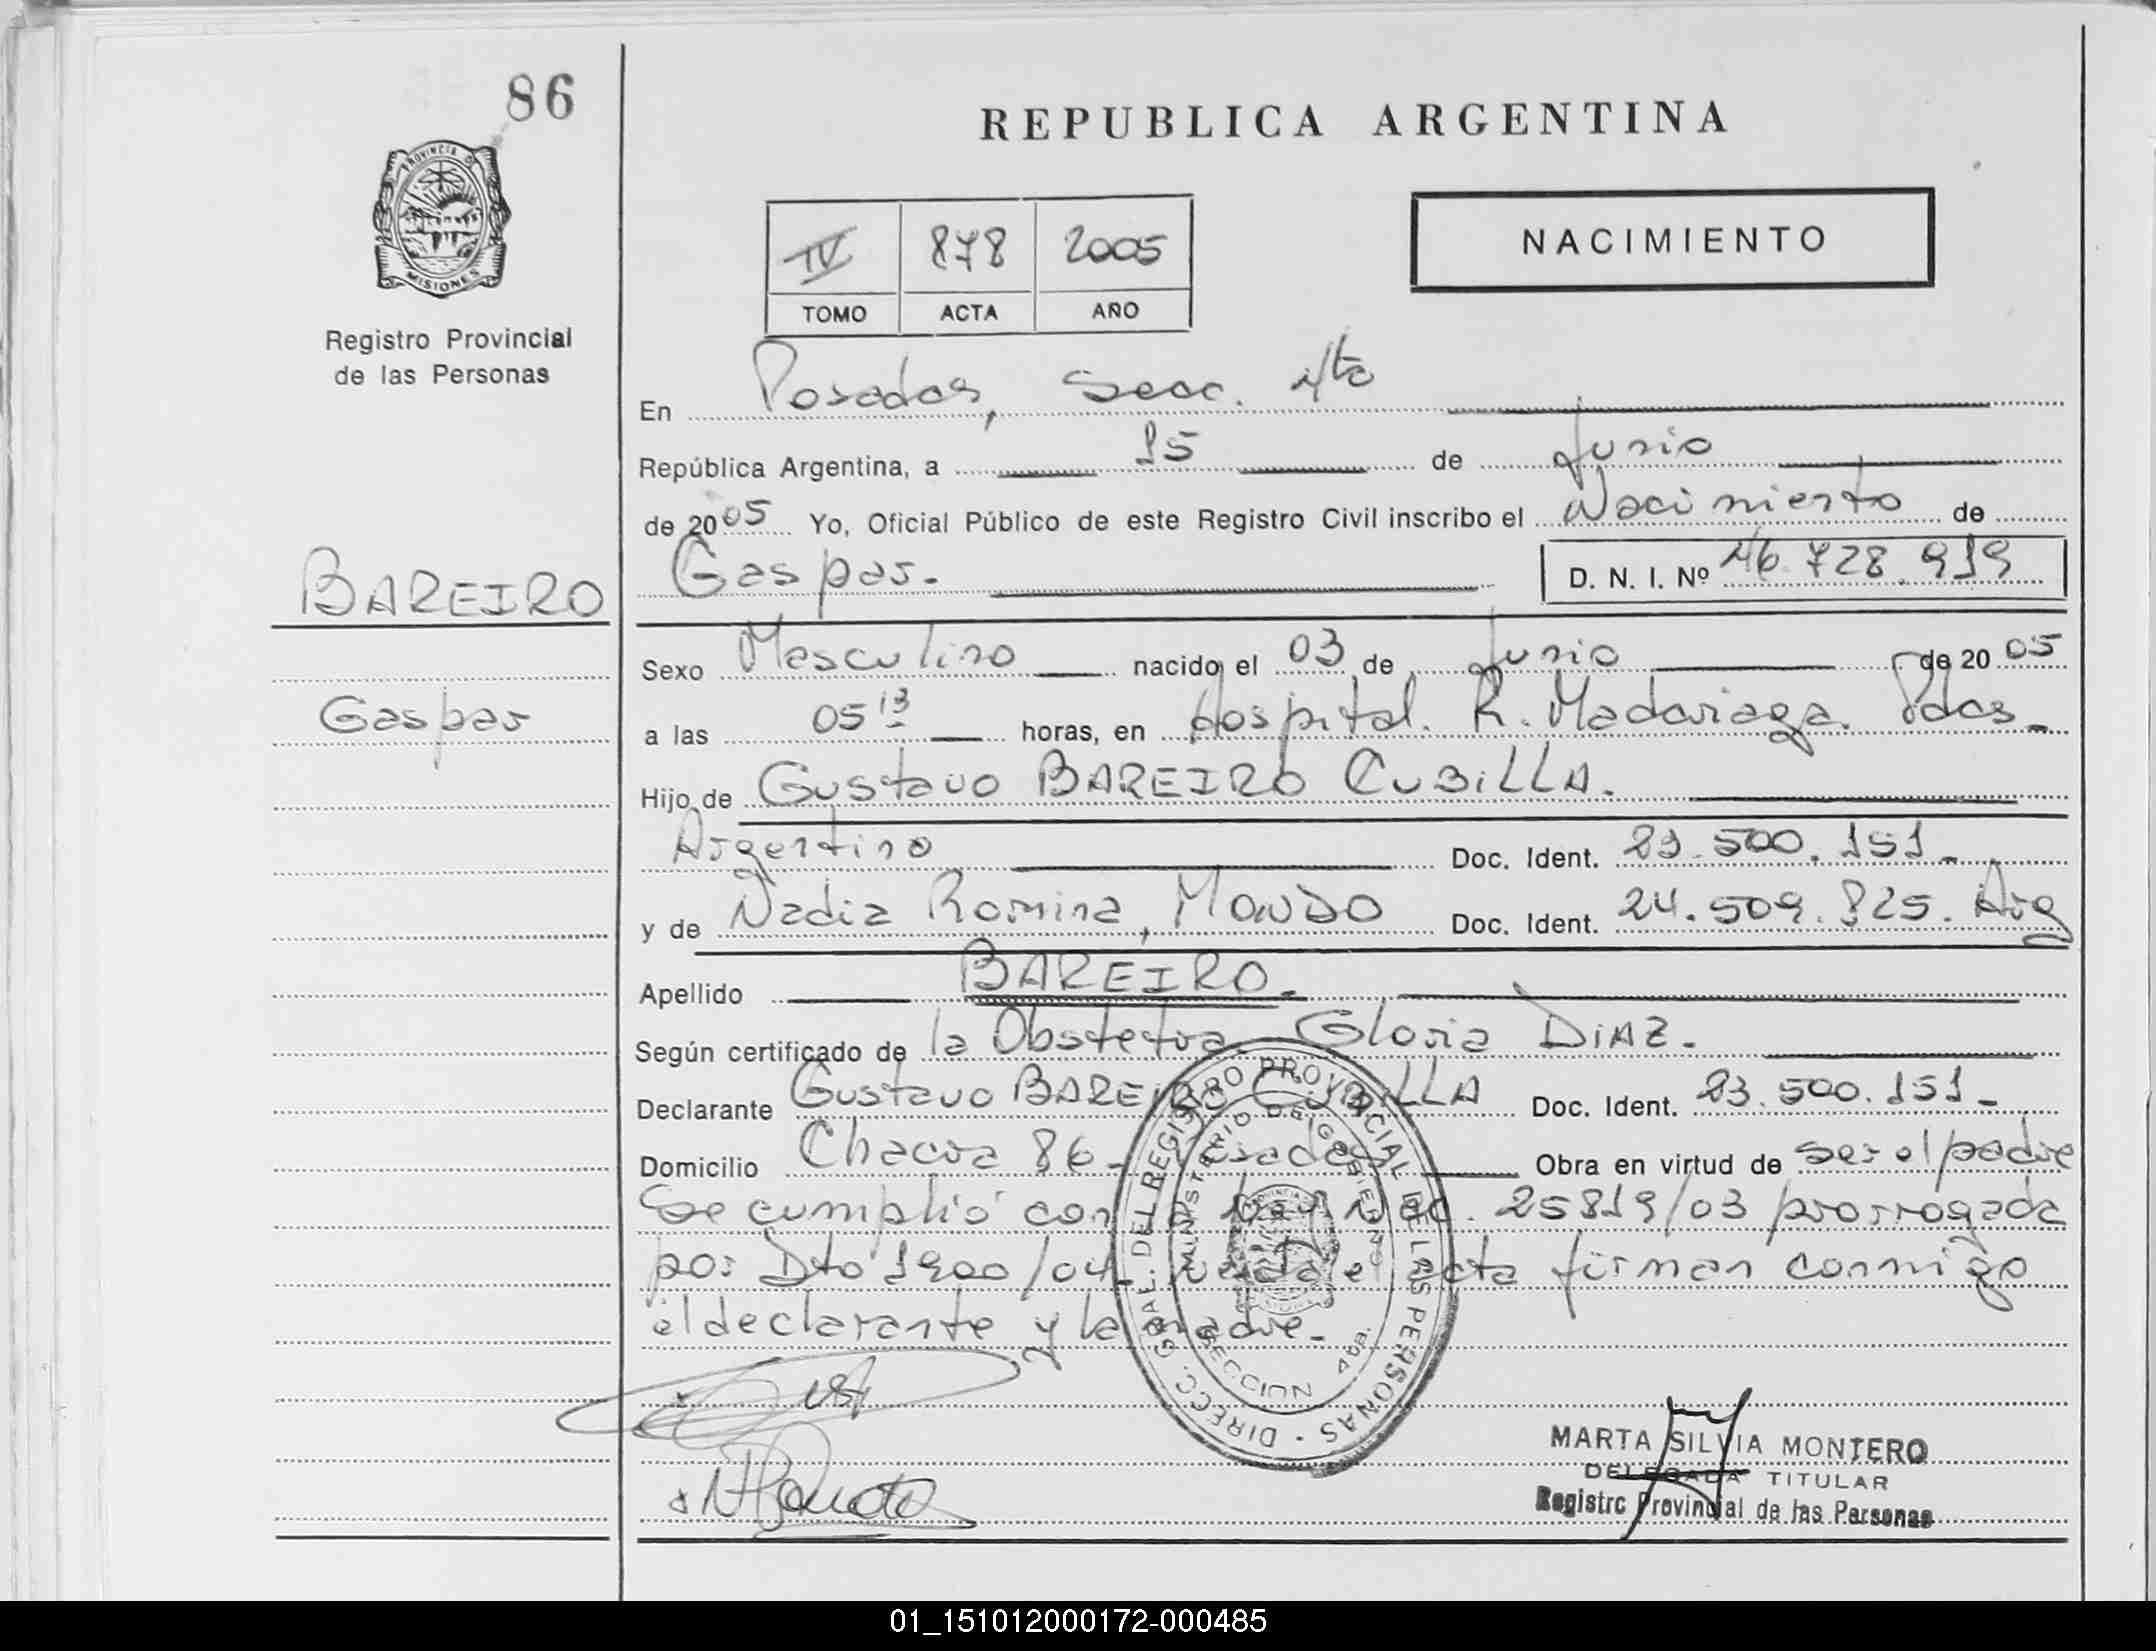 86
PROVINCIA DE
MISIONES
Registro Provincial
de las Personas
BAREIRO
Gaspar
REPUBLICA ARGENTINA
IV 878 2005
TOMO ACTA AÑO
NACIMIENTO
En Posadas, Secc. 4ta
República Argentina, a 15 de Junio
de 2005 Yo, Oficial Público de este Registro Civil inscribo el Nacimiento de
Gaspar. D. N. I. Nº 46.728.919
Sexo Masculino nacido el 03 de Junio de 2005
a las 05 13 horas, en Hospital. R. Madariaga. Pdas
Hijo de Gustavo BAREIRO CUBILLA.
Argentino Doc. Ident. 23.500.151
y de Nadia Romina, Doc. Ident. 24.509.825. Arg
Apellido BAREIRO.
Según certificado de la Obstetra Gloria DIAZ.
Declarante Gustavo BAREIRO CUBILLA Doc. Ident. 23.500.151
Domicilio Chacra 86 Posadas Obra en virtud de ser el padre
Se cumplió con la Ley Nac. 25819/03 prorrogada
por Dto 1900/04 acta firman conmigo
el declarante y la madre.
DIRECC. GRAL. DEL REGISTRO PROVINCIAL DE LAS PERSONAS
MINISTERIO DE GOBIERNO
SECCION 4ta.
MARTA SILVIA MONTERO
DELEGADA TITULAR
Registro Provincial de las Personas
01_151012000172-000485